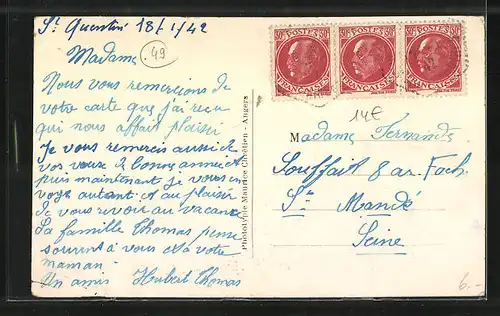 St Quentin 18/1/42
49
Madame
Nous vous remercions de
votre carte que j'ai reçu
qui nous affait plaisir
Je vous remercis aussi de
vos veux de bonne année et
puis maintenant je vous en
voye autant et au plaisir
de vous revoir au vacance
La famille Thomas pense
souvent à vous et à votre
maman
Un amis Hubert Thomas
Phototypie Maurice Chrétien - Angers
POSTES
FRANÇAISES
POSTES
FRANÇAISES
POSTES
FRANÇAISES
14€
Madame Fernande
Souffait 8 av. Foch
St Mandé
Seine
6.-